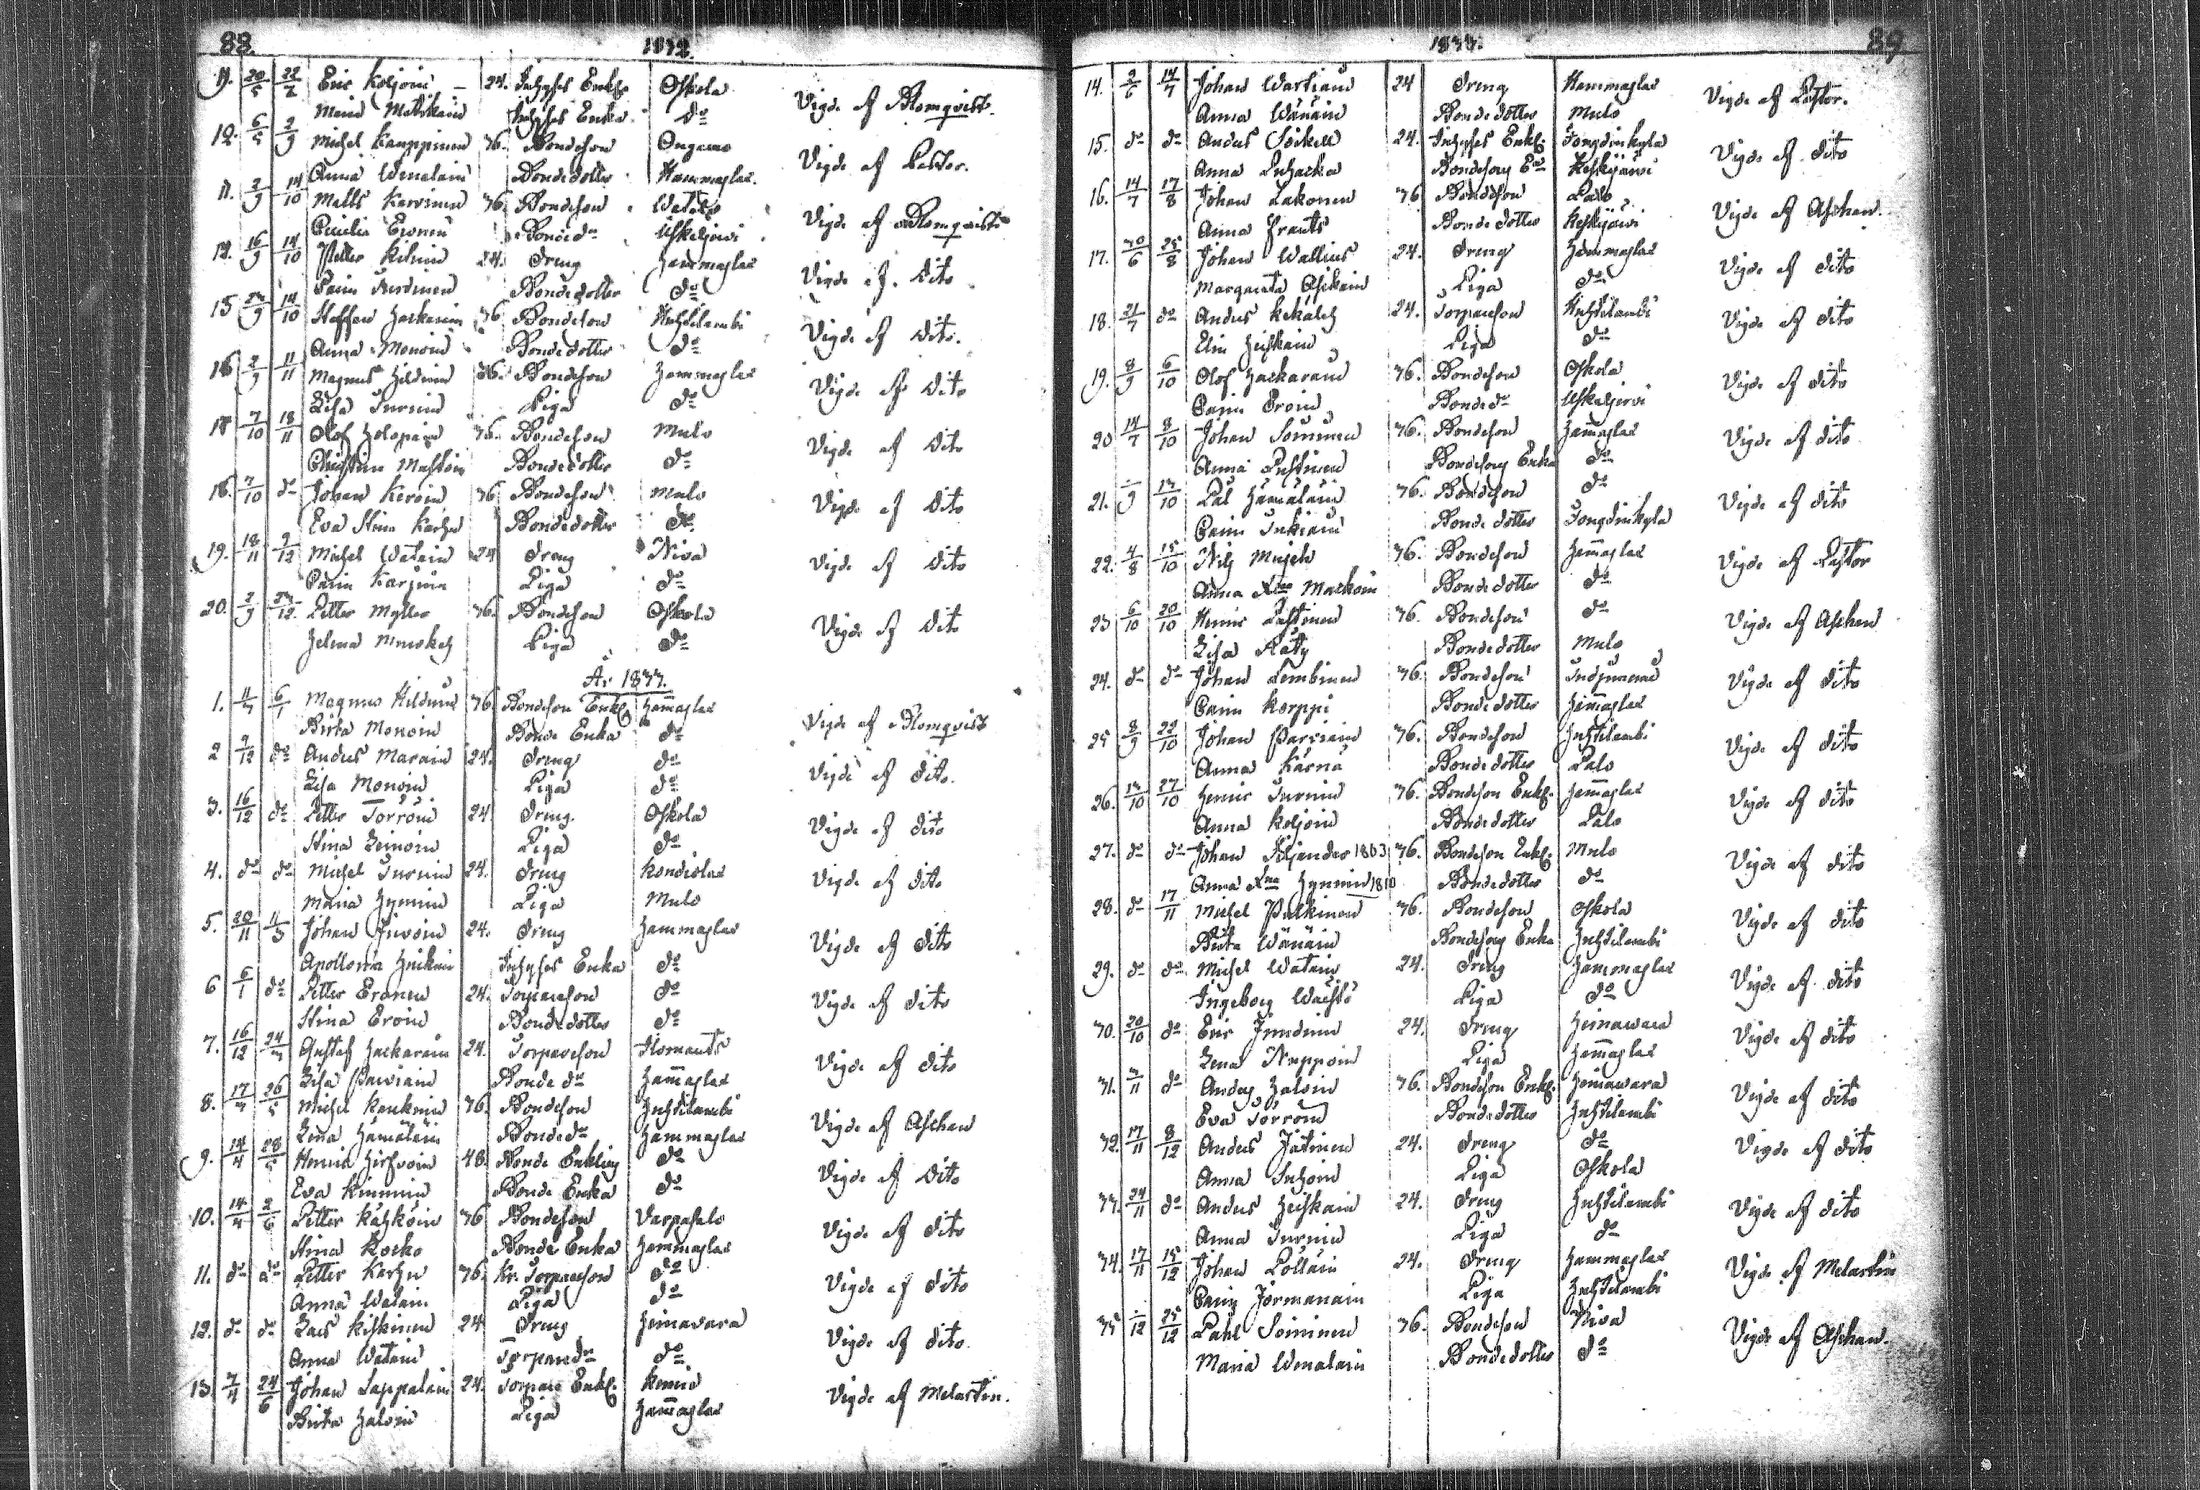 88. 1832.
9. 20/5 22/7 Eric Koljoin 24. Inhyses Enkl. Oskola Vigde af Blomqvist.
Maria Matikain Inhyses Enka do
12. 6/5 2/9 Michel Kauppinen 36. Bondeson Onganus Vigde af Pastor.
Anna Wenalain Bondedotter Hammaslax.
11. 2/9 14/10 Matts Karvinen 36. Bondeson Watala Vigde af Blomqvist
Cecilia Eronen Bonde do Uskeljerwi
14. 16/9 14/10 Petter 24. Dreng Hammaslax Vigde af Dito
Carin Turunen Bondedotter do
15 /9 14/10 Staffan Hackarain 36 Bondeson Huhtilambi Vigde af Dito.
Anna Monoin Bondedotter do
16 2/9 11/11 Magnus Hildiin 36. Bondeson Hammaslax Vigde af Dito
Lisa Turunin Piga do
17 7/10 18/11 Olof Holopain 36. Bondeson Mulo Vigde af Dito
Christina Mustoin Bondedotter do
18. 7/10 do Johan Kervin 36 Bondeson Mulo Vigde af Dito
Eva Stina Karhu Bondedotter do
19. 18/11 9/12 Michel Watain 24 Dreng Niva Vigde af Dito
Carin Karjuin Piga do
20. 2/9 23/12 Petter Myller 36. Bondeson Oskola Vigde af Dito
Helena Piga do
År 1833.
1. 6/1 Magnus Hilduin 36. Bondeson Enkl. Hamaslax Vigde af Blomqvist
Birta Monoin Bonde Enka do
2 9/12 do Anders Marain 24. Dreng do Vigde af Dito.
Lisa Monoin Piga do
3. 16/12 do Petter Torroin 24 Dreng. Oskola Vigde af Dito
Stina Leinoin Piga do
4. do do Michel Turunin 24. Dreng Kondiolax Vigde af Dito
Maria Hynnin Piga Mulo
5. 20/11 4/3 Johan Juvoin 24. Dreng Hammaslax Vigde af Dito
Apollonia Heikain Inhyses Enka do
6 6/1 do Petter Eronen 24. Torpareson do Vigde af Dito
Stina Eroin Bondedotter do
7. 16/12 24/3 Gustaf Hackarain 24. Torpareson Ilomants Vigde af Dito
Lisa Parviain Bonde do Hammaslax
8. 17/3 26/5 Michel Kauknin 36. Bondeson Huhtilambi Vigde af Aschan
Lena Hämäläin Bonde do Hammaslax
9. 14/4 28/5 Henric Hirvoin 48. Bonde Enkling do Vigde af Dito
Eva Kinnunin Bonde Enka do
10. 14/4 2/6 Petter Kähköin 36 Bondeson Varpasalo Vigde af Dito
Stina Kocko Bonde Enka Hammaslax
11. do do Petter Karhu 36. Kr. Torpareson do Vigde af Dito
Anna Watain Piga do
12. do do Lars Kiiskinen 24 Dreng Heinavara Vigde af Dito.
Anna Watain Torpare do do
13 7/4 24/6 Johan Lappalain 24. Torpare Enkl. Kiimie Vigde af Melartin.
Birta Halvin Piga Hammaslax
1833. 89
14. 2/6 14/7 Johan Wartiain 24 Dreng Hammaslax Vigde af Pastor.
Anna Wänäin Bondedotter Mulo
15. do do Anders Söikell 24. Inhyses Enkl. Tongdinkyla Vigde af Dito
Anna Puhacka Bondesons Ea Keskijärvi
16. 14/7 17/8 Johan Lakonen 36 Bondeson Palo Vigde af Aschan.
Anna Frants Bondedotter Keskijärvi
17. 30/6 25/8 Johan Wallius 24. Dreng Hammaslax Vigde af Dito
Margareta Asikain Piga do
18. 21/7 do Anders Kekäleh 24. Torpareson Huhtilambi Vigde af Dito
Elin Heiskain Piga do
19. 8/9 6/10 Olof Hackarain 36. Bondeson Oskola Vigde af Dito
Carin Eroin Bonde do Uskeljerwi
20 14/7 8/10 Johan Soininen 36. Bondeson Hamaslax Vigde af Dito
Anna Pustinen Bondesons Enka do
21. /9 13/10 Pål Hämäläin 36. Bondeson do Vigde af Dito
Carin Inkiäin Bondedotter Tongdinkyla
22. 4/8 15/10 Nils Mujeh 36. Bondeson Hamaslax Vigde af Pastor
Anna Xna Mackoin Bondedotter do
23 6/10 20/10 Henric Pastinen 36. Bondeson do Vigde af Aschan
Lisa Räty Bondedotter Mulo
24. do do Johan Lembinen 36. Bondeson Vigde af Dito
Carin Korppi Bondedotter Hamaslax
25 8/9 22/10 Johan Parviain 36. Bondeson Huhtilambi Vigde af Dito
Anna Kärnä Bondedotter Palo
26. 13/10 27/10 Henric Turunin 36. Bondeson Enkl. Hamaslax Vigde af Dito
Anna Koljoin Bondedotter Palo
27. do do Johan Siljander 1803 36. Bondeson Enkl. Mulo Vigde af Dito
Anna Xna Hynnin 1810 Bondedotter do
28. do 17/11 Michel Pulkinen 36. Bondeson Oskola Vigde af Dito
Birta Wänäin Bondesons Enka Huhtilambi
29. do do Michel Watain 24. Dreng Hammaslax Vigde af Dito
Ingeborg Waistö Piga do
30. 20/10 do Eric Junduin 24. Dreng Heinawara Vigde af Dito
Lena Nuppoin Piga Hamaslax
31. 3/11 do Anders Halvin 36. Bondeson Enkl. Heinawara Vigde af Dito
Eva Torroin Bondedotter Huhtilambi
32. 17/11 8/12 Anders Jätinen 24. Dreng do Vigde af Dito
Anna Inhoin Piga Oskola
33. 24/11 do Anders Heiskain 24. Dreng Huhtilambi Vigde af Dito
Anna Turunin Piga do
34. 17/11 15/12 Johan Pöllain 24. Dreng Hammaslax Vigde af Melartin
Carin Jormanain Piga Huhtilambi
35 /12 25/12 Pahl Soininen 36. Bondeson Niva Vigde af Aschan.
Maria Wenalain Bondedotter do